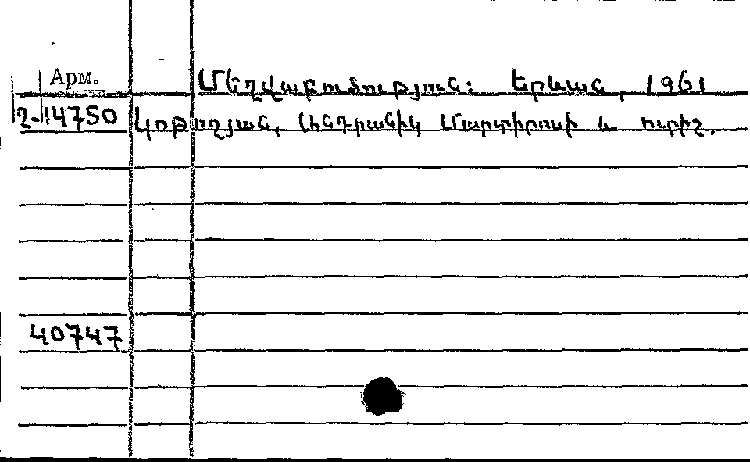 Арм. Մեղվաբուծություն: Երևան, 1961
2-14750 Կոթողյան, Անդրանիկ Մարտիրոսի և ուրիշ.
40747